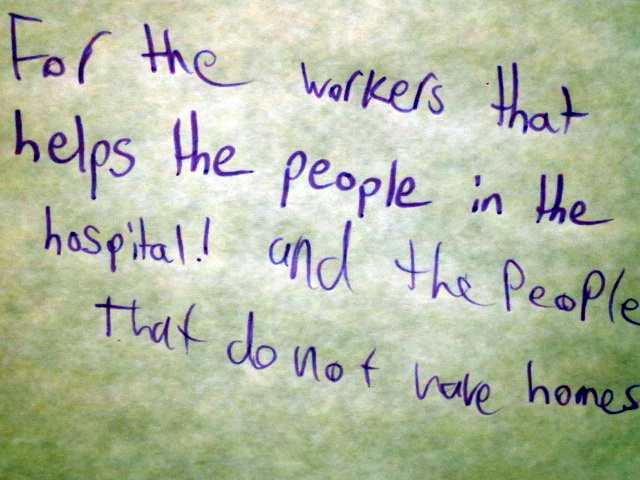 For the workers that
helps the people in the
hospital! and the People
that do not have homes